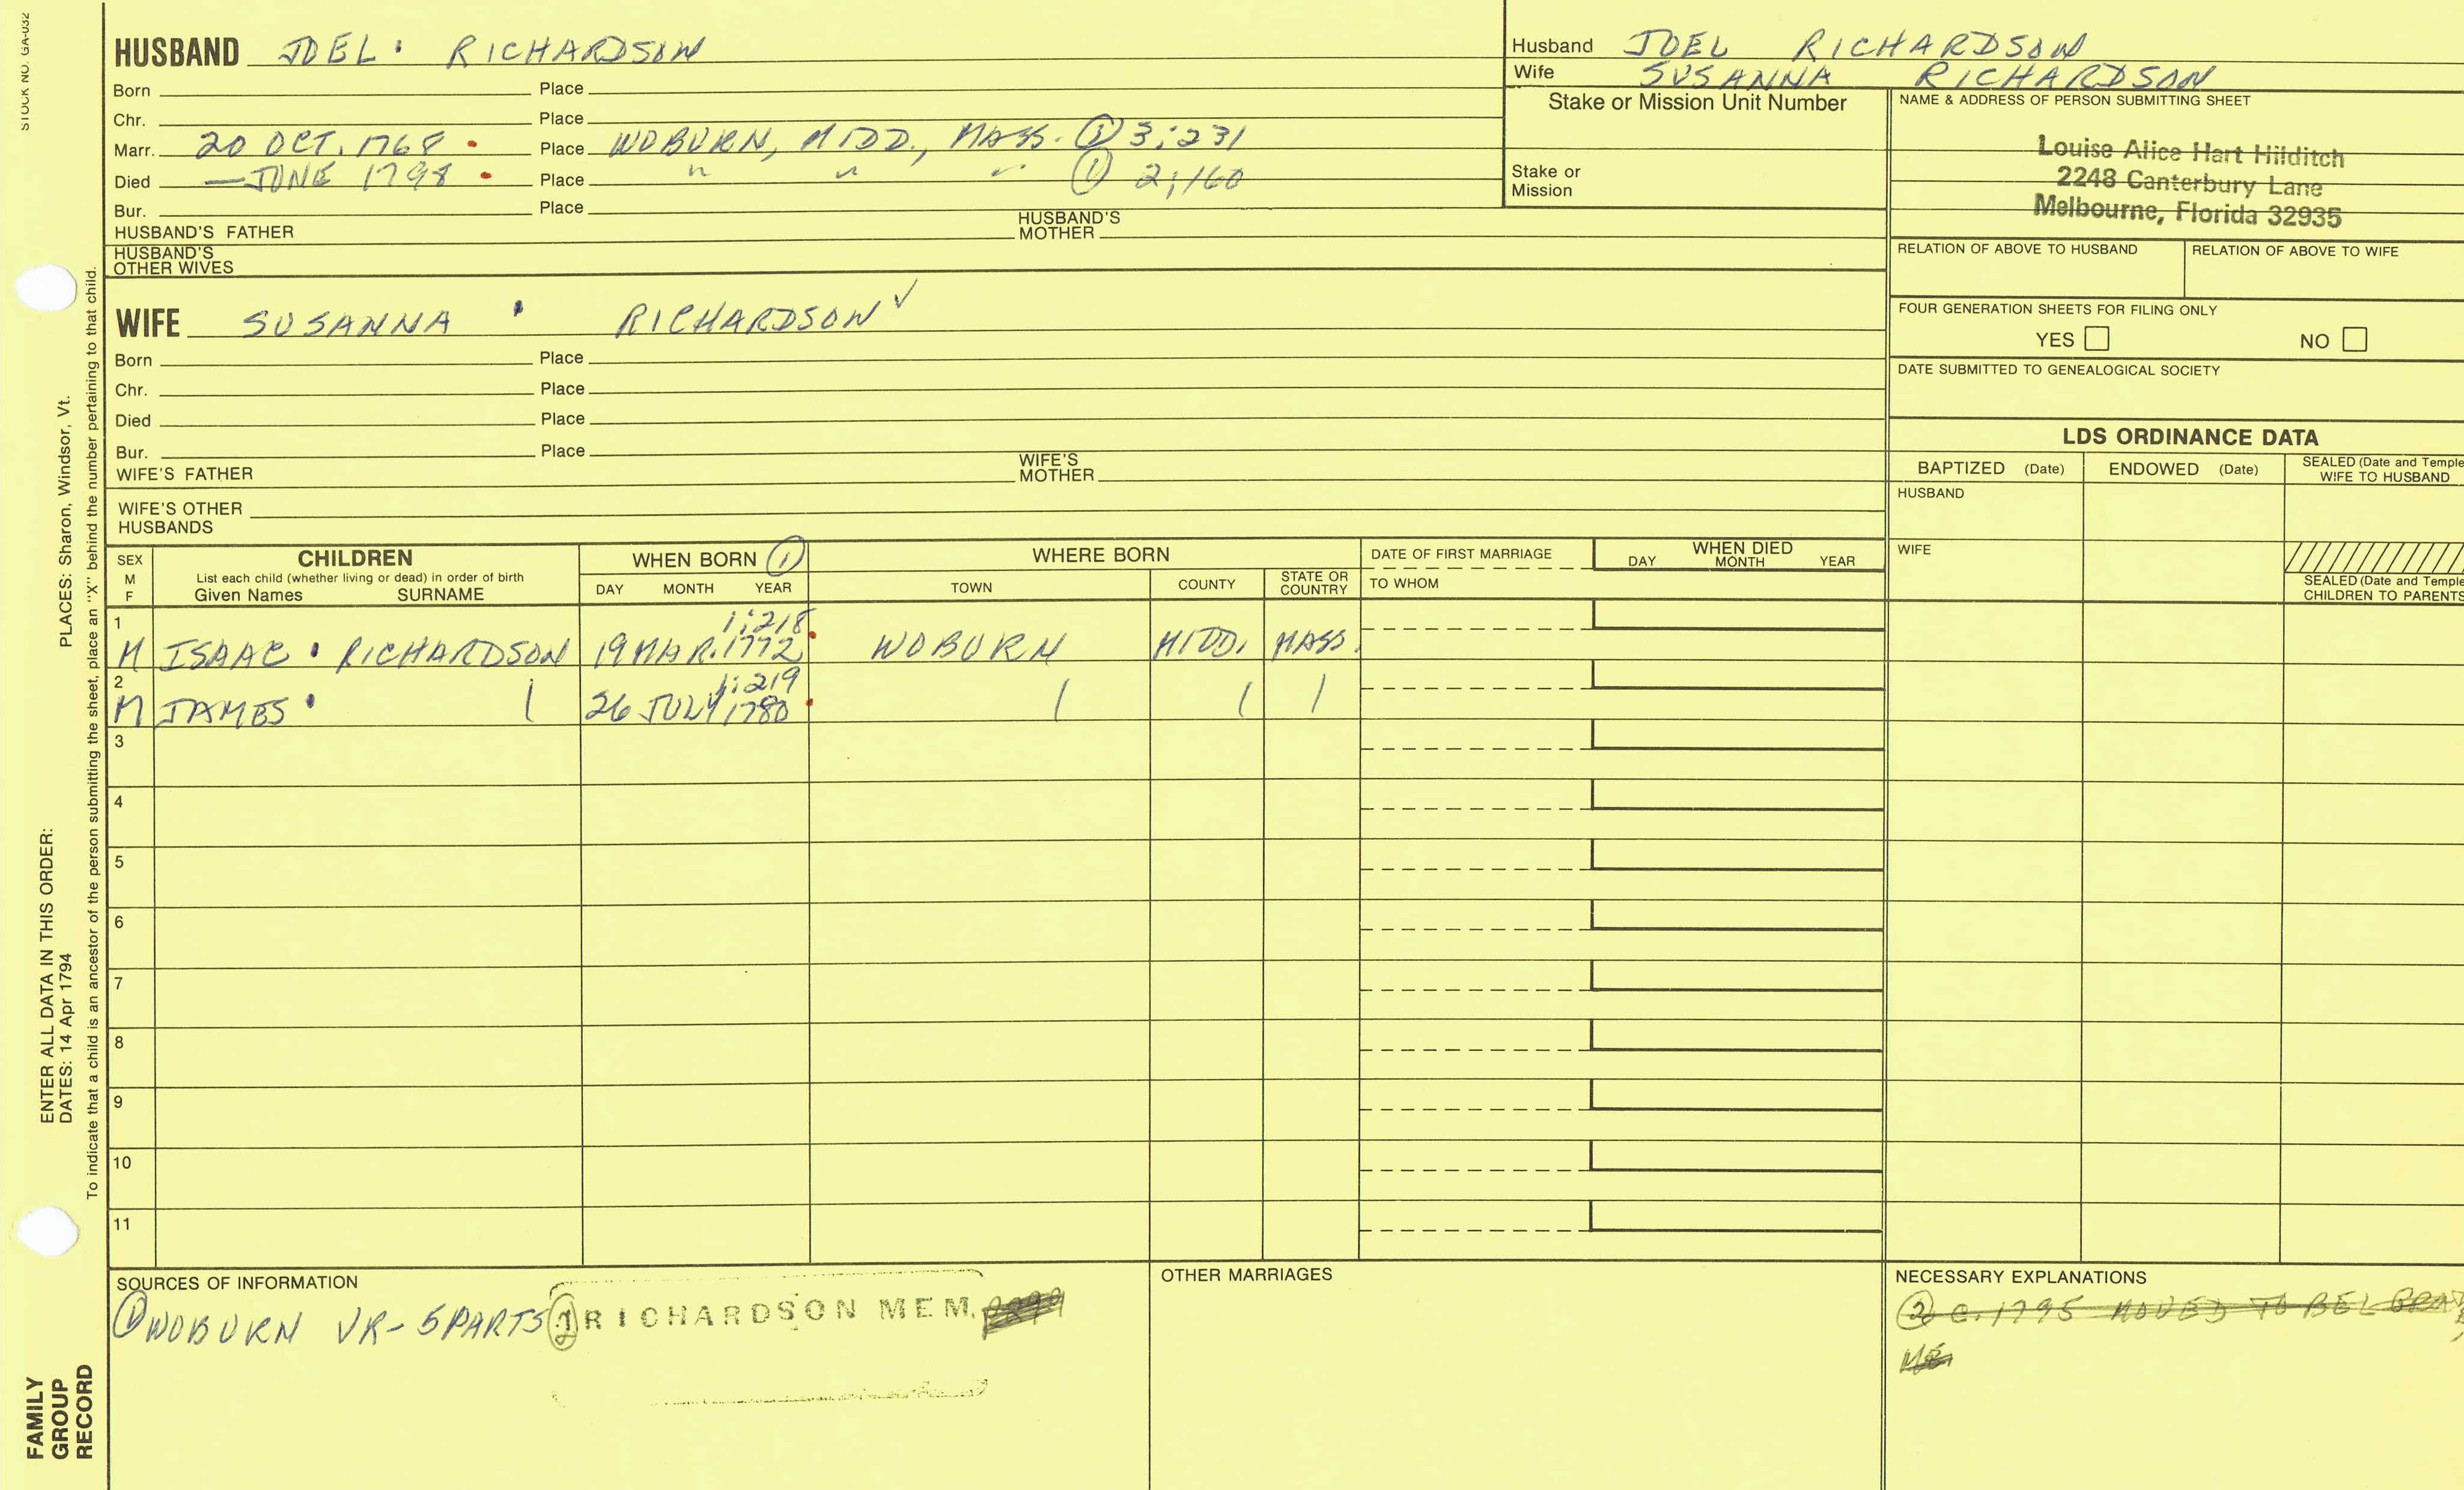 STOCK NO. GA-032
HUSBAND JOEL RICHARDSON
Born Place
Chr. Place
Marr. 20 OCT. 1768 Place WOBURN, MIDD., MASS. ① 3:231
Died — JUNE 1798 Place " " " ① 2;160
Bur. Place
HUSBAND'S FATHER HUSBAND'S MOTHER
HUSBAND'S OTHER WIVES
WIFE SUSANNA RICHARDSON ✓
Born Place
Chr. Place
Died Place
Bur. Place
WIFE'S FATHER WIFE'S MOTHER
WIFE'S OTHER HUSBANDS
Husband JOEL RICHARDSON
Wife SUSANNA RICHARDSON
Stake or Mission Unit Number
Stake or Mission
NAME & ADDRESS OF PERSON SUBMITTING SHEET
Louise Alice Hart Hilditch
2248 Canterbury Lane
Melbourne, Florida 32935
RELATION OF ABOVE TO HUSBAND RELATION OF ABOVE TO WIFE
FOUR GENERATION SHEETS FOR FILING ONLY
YES NO
DATE SUBMITTED TO GENEALOGICAL SOCIETY
LDS ORDINANCE DATA
BAPTIZED (Date) ENDOWED (Date) SEALED (Date and Temple
WIFE TO HUSBAND
HUSBAND
WIFE
SEALED (Date and Temple
CHILDREN TO PARENTS
SEX M F
CHILDREN
List each child (whether living or dead) in order of birth
Given Names SURNAME
WHEN BORN ①
DAY MONTH YEAR
WHERE BORN
TOWN COUNTY STATE OR COUNTRY
DATE OF FIRST MARRIAGE
TO WHOM
WHEN DIED
DAY MONTH YEAR
1 1:218
M ISAAC RICHARDSON 19 MAR. 1772 WOBURN MIDD. MASS.
2 1:219
M JAMES 26 JULY 1780
3
4
5
6
7
8
9
10
11
SOURCES OF INFORMATION
① WOBURN VR- 5 PARTS ② RICHARDSON MEM.
OTHER MARRIAGES
NECESSARY EXPLANATIONS
② C. 1795 MOVED TO BEL
ME
PLACES: Sharon, Windsor, Vt.
ENTER ALL DATA IN THIS ORDER:
DATES: 14 Apr 1794
To indicate that a child is an ancestor of the person submitting the sheet, place an "X" behind the number pertaining to that child.
FAMILY
GROUP
RECORD